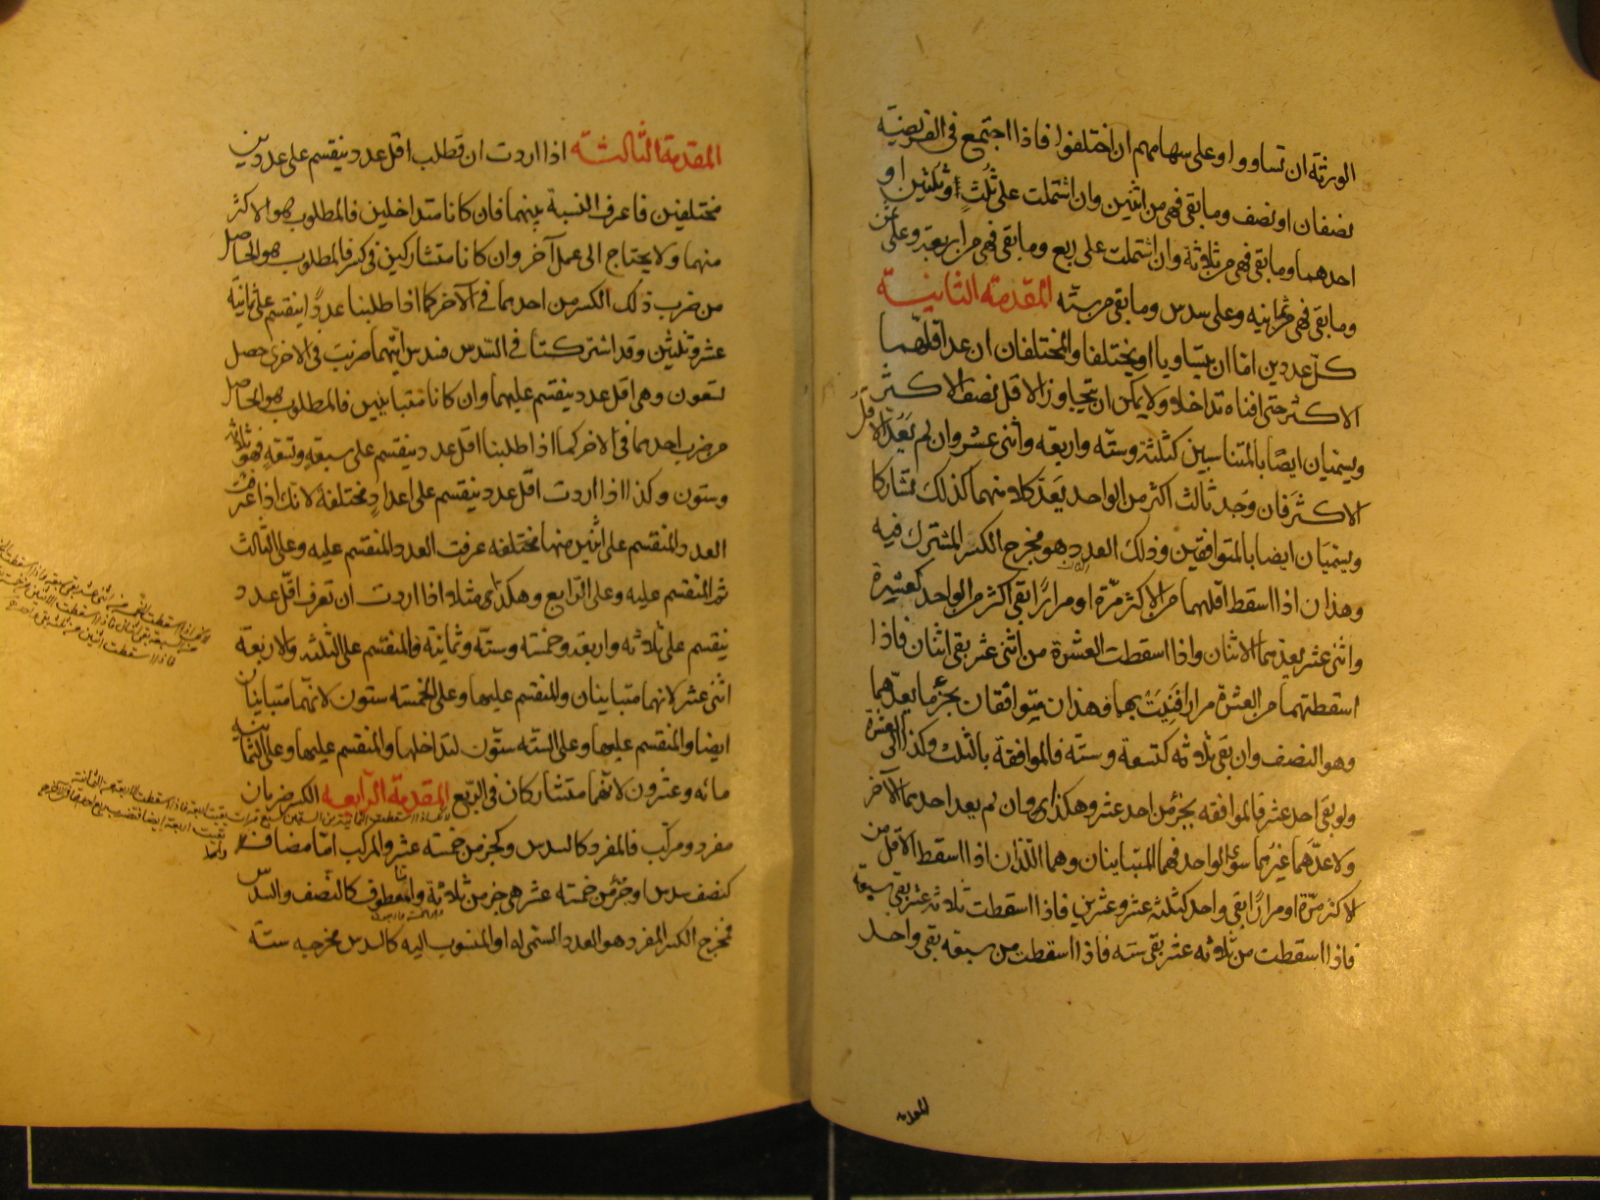 الورثة ان تساووا وعلى سهامهم ان اختلفوا فاذا اجتمع فى الفريضة
نصفان او نصف وما بقى فهى من اثنين وان اشتملت على ثُلثٍ او ثلثين او
احدهما وما بقى فهى من ثلاثة وان اشتملت على ربع وما بقى فهى من اربعة وعلى ثمن
وما بقى فهى من ثمانيه وعلى سدس وما بقى من ستّه المقدمة الثانية
كلّ عددين امّا ان يتساويا او يختلفا والمختلفان ان عدّ اقلّهما
الاكثر حتى افناه تداخلا ولا يمكن ان يتجاوز الاقل نصف الاكثر
ويسميان ايضًا بالمتناسبين كثلثة وستّه واربعه واثنى عشر وان لم يَعُدّ الاقلّ
الاكثر فان وجد ثالث اكثر من الواحد يعدّ كلا منهما كذلك تشاركا
ويسمّيان ايضا بالمتوافقين وذلك العدد هو مخرج الكسر المشترك فيه
وهذان اذا اسقط اقلهما من الاكثر مرّة او مرارًا بقى اكثر من الواحد كعشرة
واثنى عشر يعدّهما الاثنان واذا اسقطت العشرة من اثنى عشر بقى اثنان فاذا
اسقطتهما من العشرة مرارا فَنِيَتْ بهما فهذان يتوافقان بجزء ما يعدّهما
وهو النصف وان بقى ثلاثه كتسعة وستّه فالموافقة بالثلث وكذا الى العشرة
ولو بقى احد عشر فالموافقه بجزء من احد عشر وهكذا وان لم يعد احدهما الآخر
ولا عدّهما غيرهما سوى الواحد فهما المتباينان وهما اللّذان اذا اسقط الاقل من
الاكثر مرّة او مرارًا بقى واحد كثلثه عشر وعشرين فاذا اسقطت ثلاثه عشر بقى سبعة
فاذا اسقطت من ثلاثه عشر بقى ستّه فاذا اسقطت من سبعه بقى واحد
المقدمة الثالثة اذا اردت ان تطلب اقل عدد ينقسم على عددين
مختلفين فاعرف النسبة بينهما فان كانا متداخلين فالمطلوب هو الاكثر
منهما ولا يحتاج الى عمل آخر وان كانا متشاركين فى كسر فالمطلوب هو الحاصل
من ضرب ذلك الكسر من احدهما فى الآخر كما اذا طلبنا عددًا ينقسم على ثمانية
عشر وثلثين وقد اشتركتا فى السّدس فسدس ايّهما ضربت فى الاخرى حصل
تسعون وهى اقل عدد ينقسم عليهما وان كانا متباينين فالمطلوب هو الحاصل
من ضرب احدهما فى الآخر كما اذا طلبنا اقل عدد ينقسم على سبعةٍ وتسعةٍ فهو ثلاثة
وستون وكذا اذا اردت اقل عدد ينقسم على اعدادٍ مختلفةٍ لانك اذا عرفت
العدد المنقسم على اثنين منها مختلفه عرفت العدد المنقسم عليه وعلى الثالث
ثم المنقسم عليه وعلى الرّابع وهكذا مثلا اذا اردت ان تعرف اقلّ عدد
ينقسم على ثلاثه واربعه وخمسه وستّه وثمانية فالمنقسم على الثلثه والاربعة
اثنى عشر لانهما متباينان والمنقسم عليهما وعلى الخمسه ستون لانهما متباينان
ايضا والمنقسم عليهما وعلى الستّه ستّون لتداخلها والمنقسم عليهما وعلى الثمانيه
مائه وعشرون لانّهما متشاركان فى الرّبع المقدمة الرّابعه الكسر ضربان
مفرد ومركّب فالمفرد كالسدس وكجزء من خمسه عشر والمركب امّا مضاف
كنصف سدس او جزء من خمسه عشر هى جزء من ثلاثة وامّا معطوف كالنصف والسدس
فمخرج الكسر المفرد هو العدد السّمى له او المنسوب اليه كالسدس مخرجه ستّه